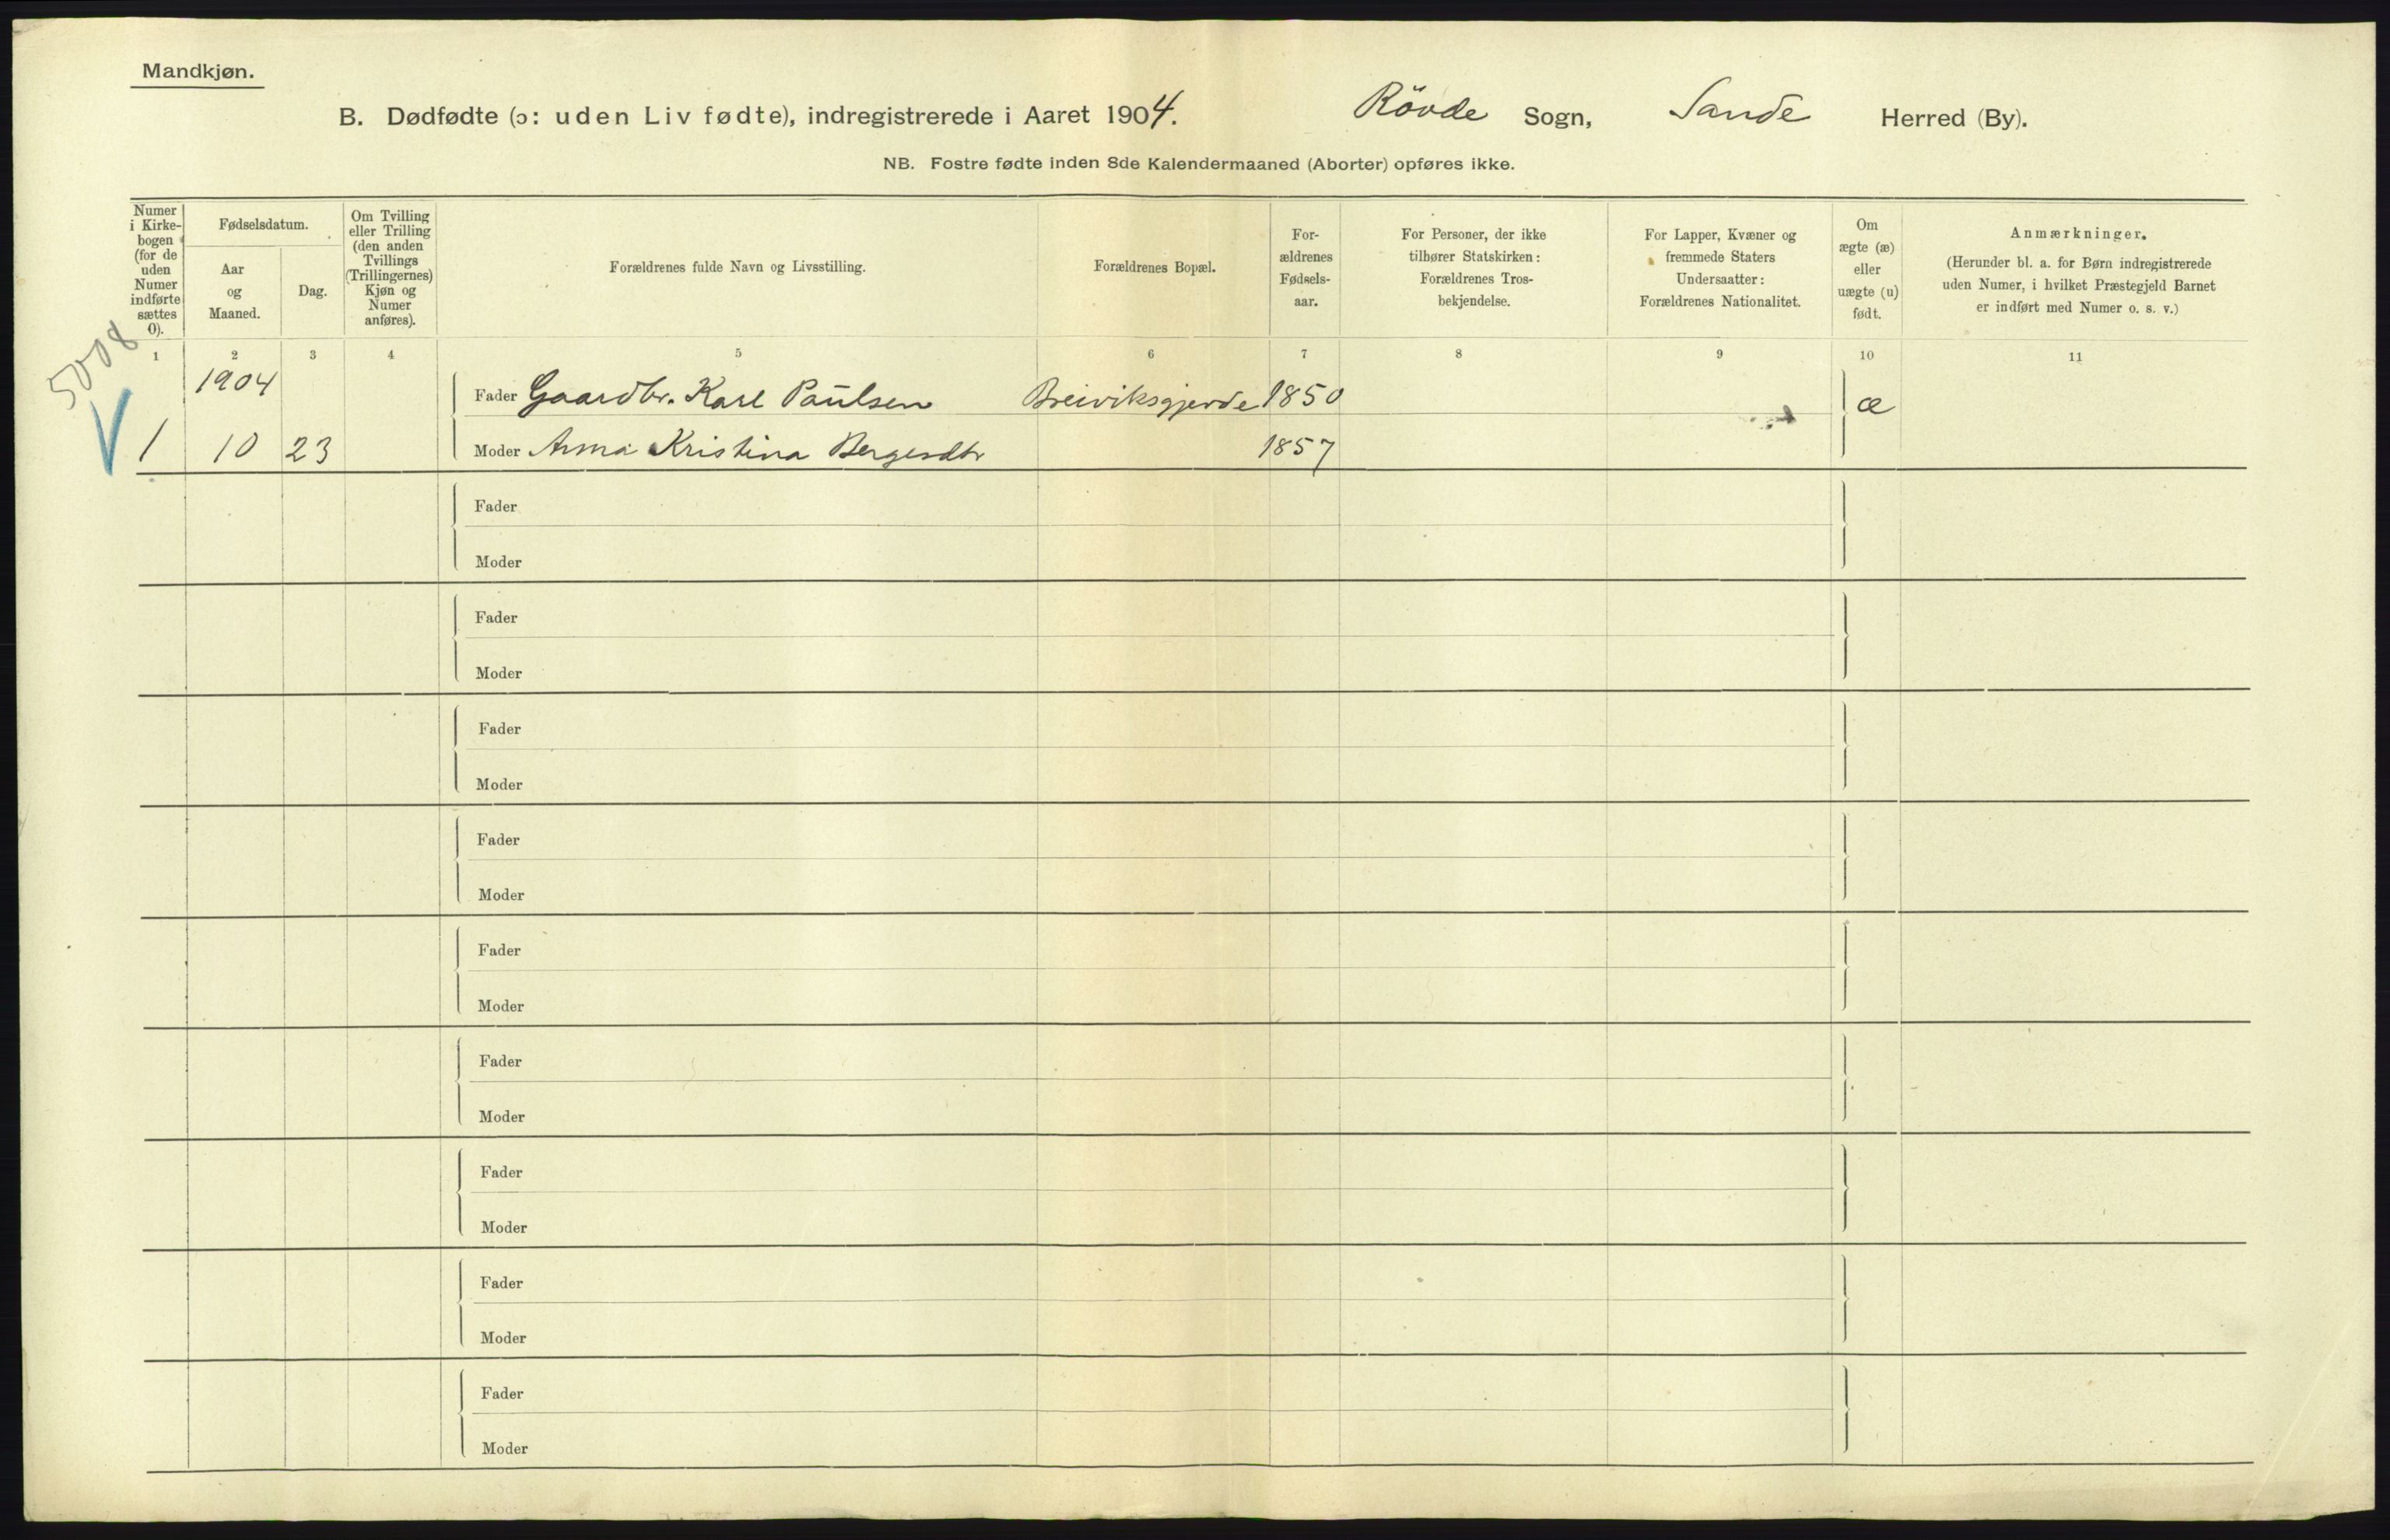 Mandkjøn.
B. Dødfødte (ɔ: uden Liv fødte), indregistrerede i Aaret 1904. Rövde Sogn, Sande Herred (By).
NB. Fostre fødte inden 8de Kalendermaaned (Aborter) opføres ikke.
Numer
i Kirke-
bogen
(for de
uden
Numer
indførte
sættes
0).
Fødselsdatum.
Aar
og
Maaned.
Dag.
Om Tvilling
eller Trilling
(den anden
Tvillings
(Trillingernes)
Kjøn og
Numer
anføres).
Forældrenes fulde Navn og Livsstilling.
Forældrenes Bopæl.
For-
ældrenes
Fødsels-
aar.
For Personer, der ikke
tilhører Statskirken:
Forældrenes Tros-
bekjendelse.
For Lapper, Kvæner og
fremmede Staters
Undersaatter:
Forældrenes Nationalitet.
Om
ægte (æ)
eller
uægte (u)
født.
Anmærkninger.
(Herunder bl. a. for Børn indregistrerede
uden Numer, i hvilket Præstegjeld Barnet
er indført med Numer o. s. v.)
1 2 3 4 5 6 7 8 9 10 11
5008
1904
Fader Gaardbr. Karl Paulsen Breiviksgjerde 1850 æ
1 10 23 Moder Anna Kristina Bergesdtr 1857
Fader
Moder
Fader
Moder
Fader
Moder
Fader
Moder
Fader
Moder
Fader
Moder
Fader
Moder
Fader
Moder
Fader
Moder